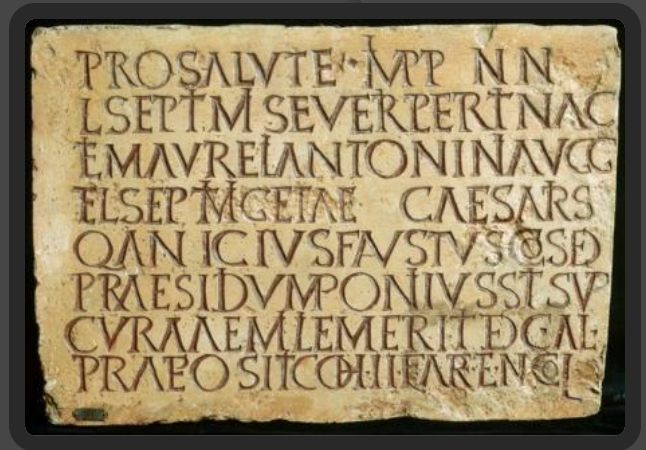 PRO SALVTE IMPP N N
L SEPTIMI SEVERI PERTINAC
ET M AVRELI ANTONINI AVGG
ET L SEPTIMI GETAE CAESARIS
Q ANICIVS FAVSTVS COS DE
PRAESIDIVM PONI IVSSIT SVB
CVRA AEMILI EMERITI DEC AL
PRAEPOSITI COH II FL AFR ET N COL